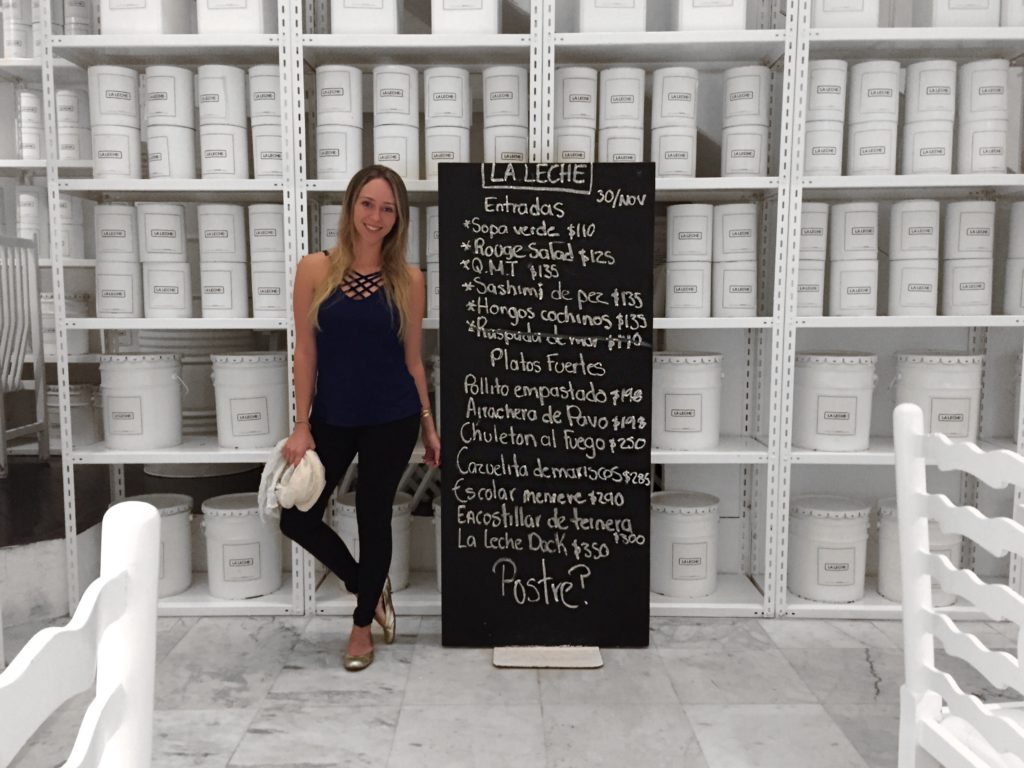 LA LECHE
30/NOV
Entradas
*Sopa verde $110
*Rouge Salad $125
*Q.M.T $135
*Sashimi de pez $135
*Hongos cochinos $135
*Raspada de mar $140
Platos Fuertes
Pollito empastado $198
Arrachera de Pavo $198
Chuleton al Fuego $230
Cazuelita de mariscos $285
Escolar meniere $290
Encostillar de ternera $300
La Leche Duck $350
Postre?